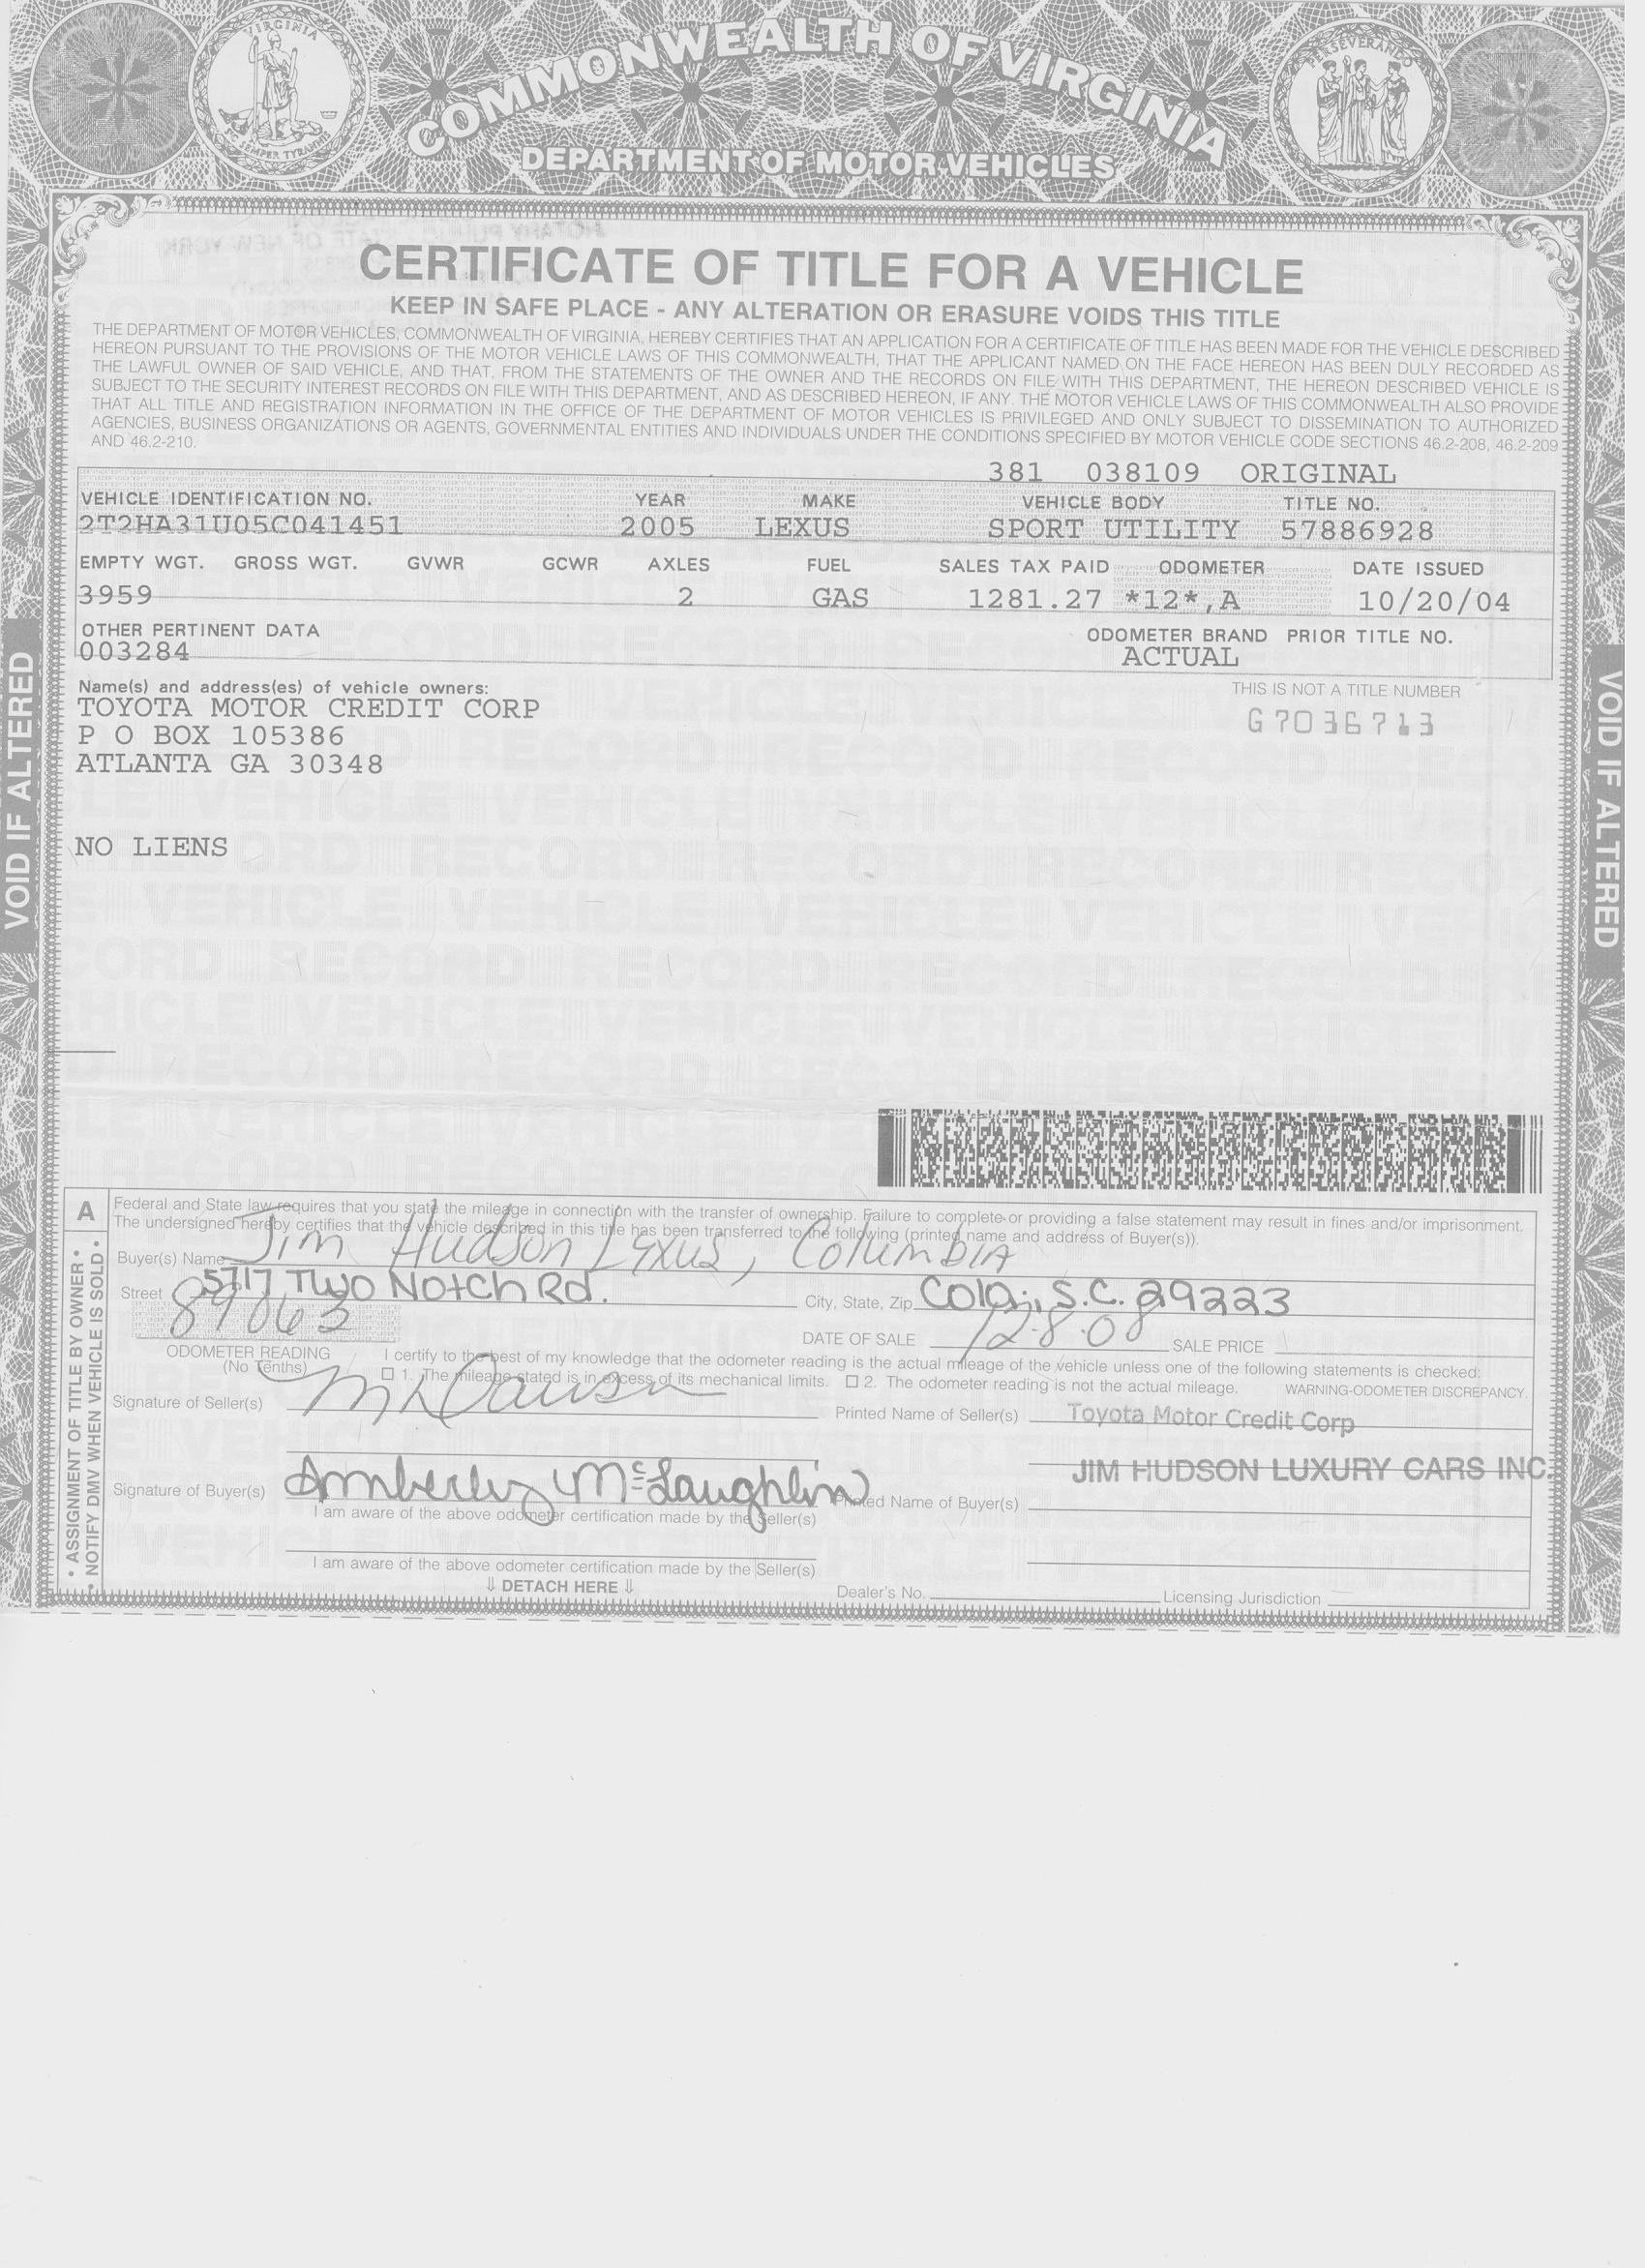 VIRGINIA
SIC SEMPER TYRANNIS
COMMONWEALTH OF VIRGINIA
PERSEVERANDO
DEPARTMENT OF MOTOR VEHICLES
CERTIFICATE OF TITLE FOR A VEHICLE
KEEP IN SAFE PLACE - ANY ALTERATION OR ERASURE VOIDS THIS TITLE
THE DEPARTMENT OF MOTOR VEHICLES, COMMONWEALTH OF VIRGINIA, HEREBY CERTIFIES THAT AN APPLICATION FOR A CERTIFICATE OF TITLE HAS BEEN MADE FOR THE VEHICLE DESCRIBED
HEREON PURSUANT TO THE PROVISIONS OF THE MOTOR VEHICLE LAWS OF THIS COMMONWEALTH, THAT THE APPLICANT NAMED ON THE FACE HEREON HAS BEEN DULY RECORDED AS
THE LAWFUL OWNER OF SAID VEHICLE, AND THAT, FROM THE STATEMENTS OF THE OWNER AND THE RECORDS ON FILE WITH THIS DEPARTMENT, THE HEREON DESCRIBED VEHICLE IS
SUBJECT TO THE SECURITY INTEREST RECORDS ON FILE WITH THIS DEPARTMENT, AND AS DESCRIBED HEREON, IF ANY. THE MOTOR VEHICLE LAWS OF THIS COMMONWEALTH ALSO PROVIDE
THAT ALL TITLE AND REGISTRATION INFORMATION IN THE OFFICE OF THE DEPARTMENT OF MOTOR VEHICLES IS PRIVILEGED AND ONLY SUBJECT TO DISSEMINATION TO AUTHORIZED
AGENCIES, BUSINESS ORGANIZATIONS OR AGENTS, GOVERNMENTAL ENTITIES AND INDIVIDUALS UNDER THE CONDITIONS SPECIFIED BY MOTOR VEHICLE CODE SECTIONS 46.2-208, 46.2-209
AND 46.2-210.
381 038109 ORIGINAL
VEHICLE IDENTIFICATION NO. YEAR MAKE VEHICLE BODY TITLE NO.
2T2HA31U05C041451 2005 LEXUS SPORT UTILITY 57886928
EMPTY WGT. GROSS WGT. GVWR GCWR AXLES FUEL SALES TAX PAID ODOMETER DATE ISSUED
3959 2 GAS 1281.27 *12*,A 10/20/04
OTHER PERTINENT DATA ODOMETER BRAND PRIOR TITLE NO.
003284 ACTUAL
Name(s) and address(es) of vehicle owners: THIS IS NOT A TITLE NUMBER
TOYOTA MOTOR CREDIT CORP G7036713
P O BOX 105386
ATLANTA GA 30348
NO LIENS
VOID IF ALTERED
VOID IF ALTERED
A
• ASSIGNMENT OF TITLE BY OWNER •
• NOTIFY DMV WHEN VEHICLE IS SOLD •
Federal and State law requires that you state the mileage in connection with the transfer of ownership. Failure to complete or providing a false statement may result in fines and/or imprisonment.
The undersigned hereby certifies that the vehicle described in this title has been transferred to the following (printed name and address of Buyer(s)).
Buyer(s) Name Jim Hudson Lexus, Columbia
Street 5717 Two Notch Rd. City, State, Zip Cola., S.C. 29223
89063 DATE OF SALE 12-8-08 SALE PRICE
ODOMETER READING I certify to the best of my knowledge that the odometer reading is the actual mileage of the vehicle unless one of the following statements is checked:
(No Tenths) 1. The mileage stated is in excess of its mechanical limits. 2. The odometer reading is not the actual mileage. WARNING-ODOMETER DISCREPANCY.
Signature of Seller(s) Printed Name of Seller(s) Toyota Motor Credit Corp
JIM HUDSON LUXURY CARS INC.
Signature of Buyer(s) Amberly McLaughlin Printed Name of Buyer(s)
I am aware of the above odometer certification made by the Seller(s)
I am aware of the above odometer certification made by the Seller(s)
⇓ DETACH HERE ⇓ Dealer's No. Licensing Jurisdiction